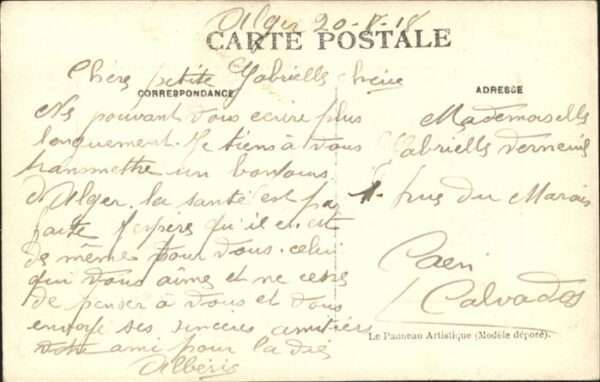 Alger 20-8-18
CARTE POSTALE
Chère petite Gabrielle chérie
CORRESPONDANCE
Ne pouvant vous ecrire plus
longuement. Je tiens à vous
transmettre un bonjour
d'Alger. la santé est par
faite j'espère qu'il en est
de même pour vous. celui
qui vous aime et ne cesse
de penser à vous et vous
envoye ses sincères amitiés
votre ami pour la vie
Albéric
ADRESSE
Mademoiselle
Gabrielle
rue du Marais
Caen
Calvados
Le Panneau Artistique (Modèle déposé).